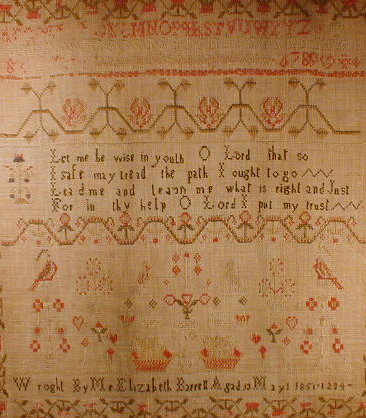 KLMNOPQRSTVUWXYZ
6789
Let me be wise in youth O Lord that so
I safe may tread the path I ought to go
Lead me and learn me what is right and Just
For in thy help O Lord I put my trust
Wroght By Me Elizabeth Barrell Aged May